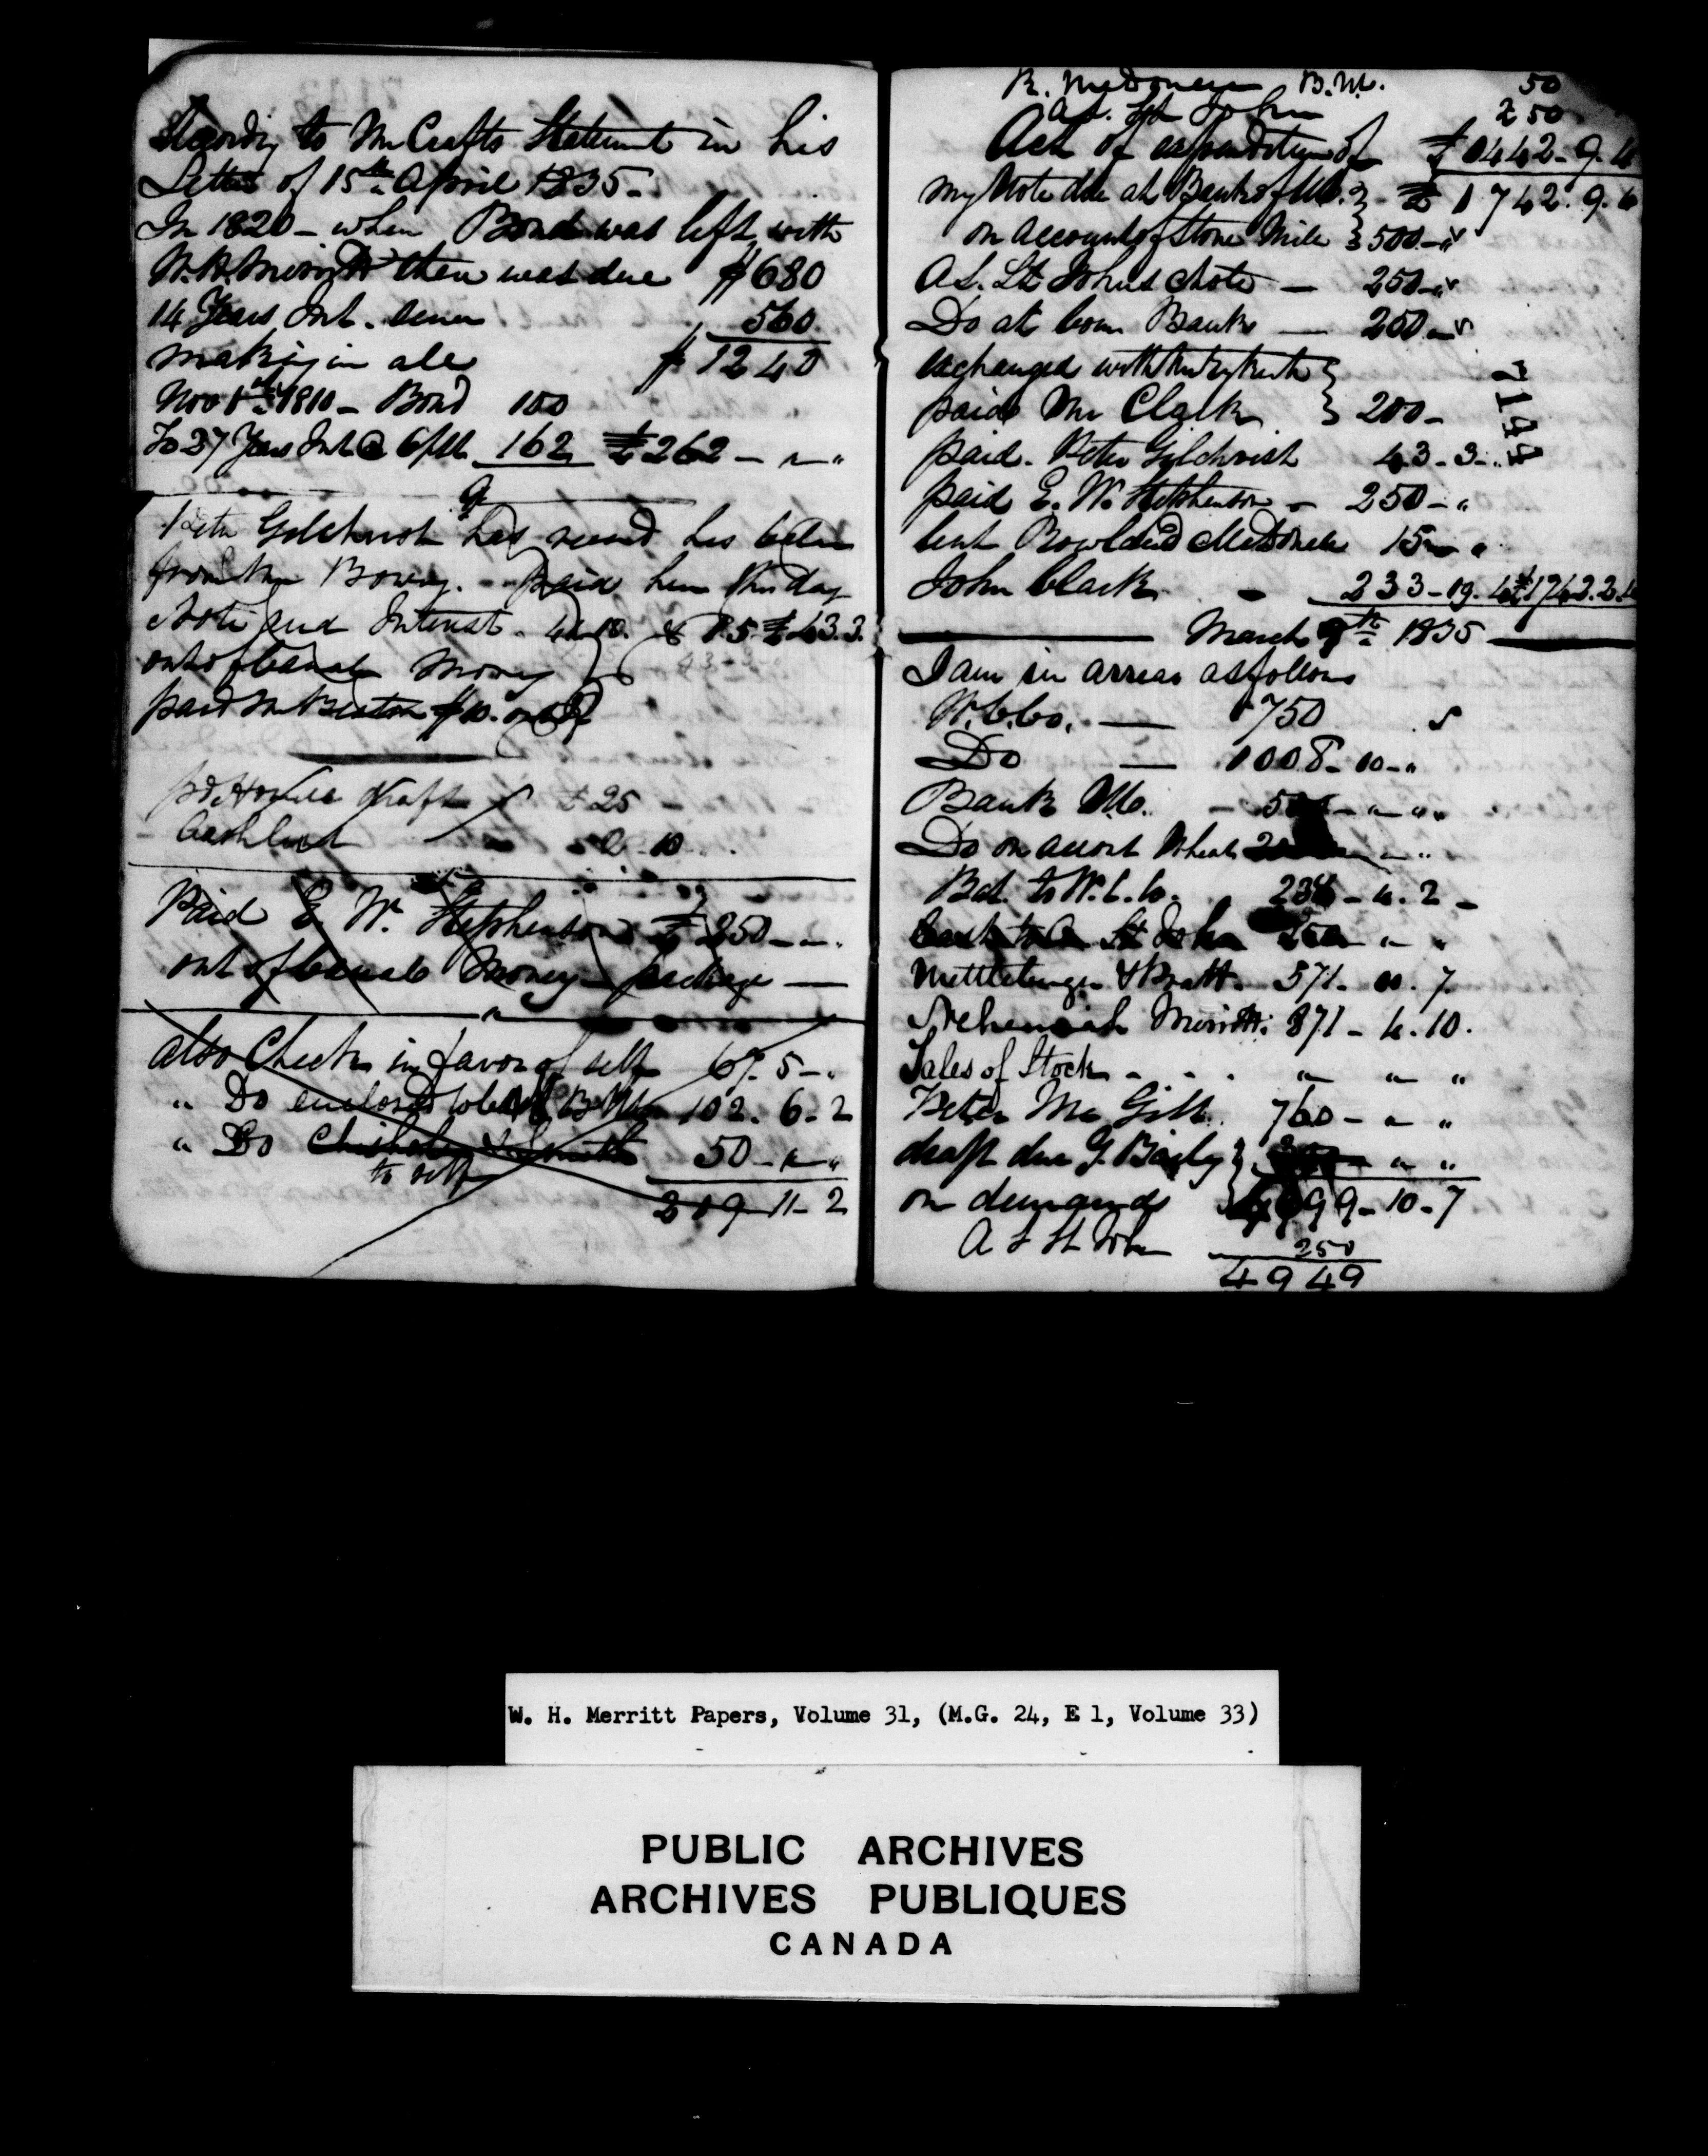 According to Mr Crafts Statement in his
Letter of 15th April 1835-
In 1820 - when Bond was left with
W. H. Merritt there was due $680
14 Years Int. Since 560
making in all $1240
Nov 1810 - Bond 100
To 27 Years Int @ 6 pct 162 £262 - " - "
Peter Gilchrist has received his
from Mr - paid him this day
Note and Interest. & £43.3.
out of Canal Money
paid Mr $10.
pd draft £25 -
Cash 10
Paid E. W. Stephenson £250 - " - "
out of Canal Money package —
also Check in favor of self 67. 5 - "
" Do enclosed 102. 6 - 2
" Do Chisholm & Smith 50 - " - "
to self
219 - 11 - 2
R. McDonell B.M. 50
A. S. St John 250
Act of expenditure of £1442 - 9. 4
my Note due at Bank of U.C. } - £1742. 9. 4
on account of Stone Mill } 500 - "
A S. St Johns Note — 250 - "
Do at Com Bank — 250 - "
exchanged with }
paid Mr Clark } 200 -
7144
paid - Peter Gilchrist 43 - 3 - "
paid E. W. Stephenson - 250 - "
lent McDonell 15 - "
John Clark - 233 - 19. 4 £1742. 2. 4
March 9th 1835
I am in arrear as follows
W.C.Co. — 750
Do — 1008 - 10 - "
Bank U.C. - 500 - " - "
Do on account Wheat
Bal. to W.C.Co. 238 - 4. 2 -
St John 250 - " "
Nettleberger & Pratt - 571 - 10. 7.
Nehemiah Merritt. 871 - 4. 10.
Sales of Stock - - - " " "
Peter McGill. 760 - " "
draft due G. } " "
on demands } 99 - 10 - 7
A S St John 250
4949
W. H. Merritt Papers, Volume 31, (M.G. 24, E 1, Volume 33)
PUBLIC ARCHIVES
ARCHIVES PUBLIQUES
CANADA